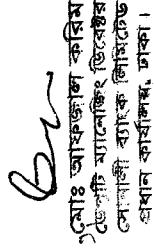 মোঃ আফজাল করিম
ডেপুটি ম্যানেজিং ডিরেক্টর
সোনালী ব্যাংক লিমিটেড
প্রধান কার্যালয়, ঢাকা।